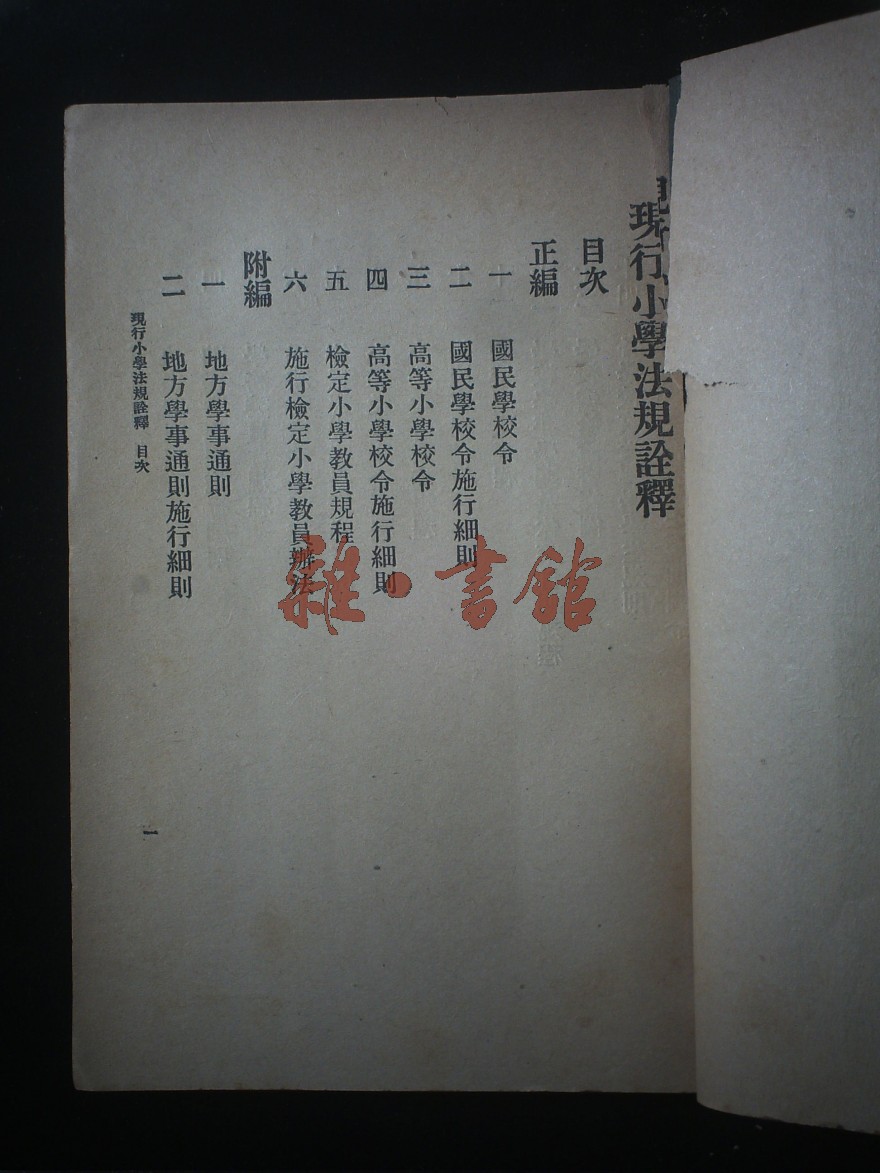 現行小學法規詮釋
目次
正編
一 國民學校令
二 國民學校令施行細則
三 高等小學校令
四 高等小學校令施行細則
五 檢定小學教員規程
六 施行檢定小學教員辦法
附編
一 地方學事通則
二 地方學事通則施行細則
現行小學法規詮釋 目次
一
雜·書館